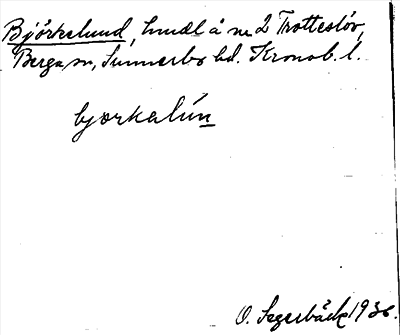 Björkelund, hmdl å nr 2 Trotteslöv,
Berga sn, Sunnerbo hd. Kronob. l.
bjorkalún
O. Segerbäck 1936.